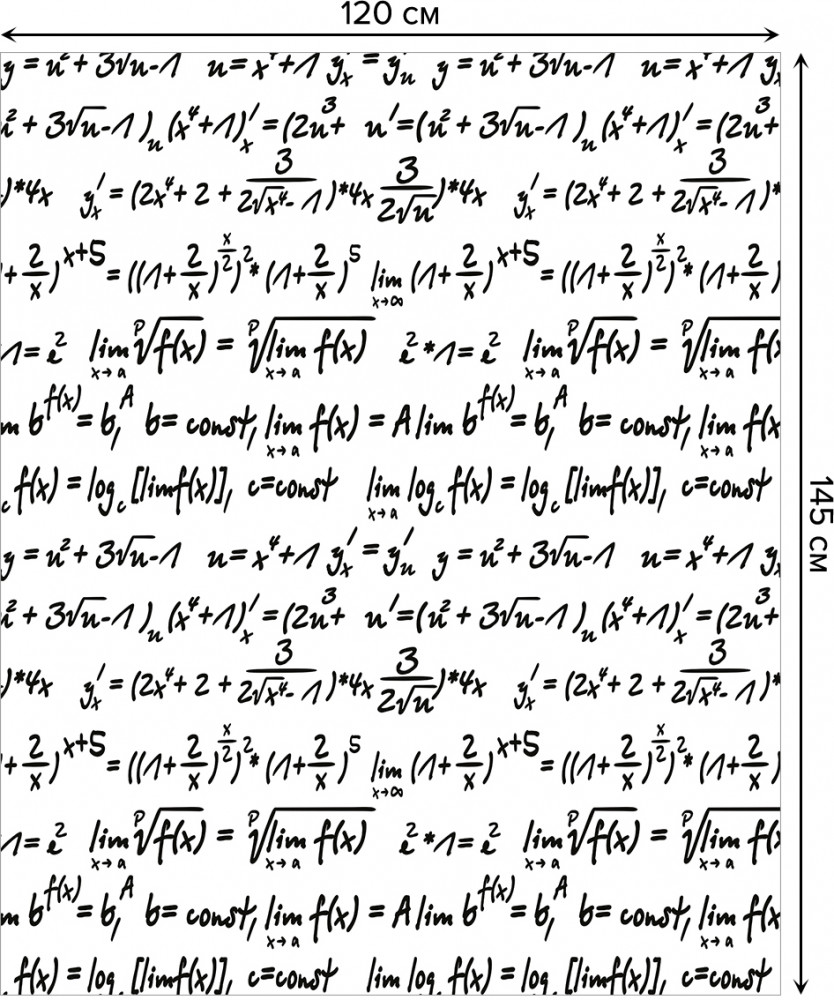 120 см
y = u² + 3√u-1 u = x⁴+1 y'ₓ = y'ᵤ y = u² + 3√u-1 u = x⁴+1 y
u² + 3√u-1 )ᵤ (x⁴+1)'ₓ = (2u³+ u' = (u² + 3√u-1 )ᵤ (x⁴+1)'ₓ = (2u³+
)*4x y'ₓ = (2x⁴+ 2 + 3/(2√x⁴-1) )*4x 3/(2√u) )*4x y'ₓ = (2x⁴+ 2 + 3/(2√x⁴-1) )*
+ 2/x)ˣ⁺⁵ = ((1+ 2/x)^(x/2))²* (1+ 2/x)⁵ lim x→∞ (1+ 2/x)ˣ⁺⁵ = ((1+ 2/x)^(x/2))²* (1+ 2/x)
1 = e² lim x→a ᵖ√f(x) = ᵖ√lim x→a f(x) e²*1 = e² lim x→a ᵖ√f(x) = ᵖ√lim x→a f(x)
m b^f(x) = b,ᴬ b = const, lim x→a f(x) = A lim b^f(x) = b,ᴬ b = const, lim x→a f(x
c f(x) = log c [limf(x)], c=const lim x→a log c f(x) = log c [limf(x)], c=const
y = u² + 3√u-1 u = x⁴+1 y'ₓ = y'ᵤ y = u² + 3√u-1 u = x⁴+1 y
u² + 3√u-1 )ᵤ (x⁴+1)'ₓ = (2u³+ u' = (u² + 3√u-1 )ᵤ (x⁴+1)'ₓ = (2u³+
)*4x y'ₓ = (2x⁴+ 2 + 3/(2√x⁴-1) )*4x 3/(2√u) )*4x y'ₓ = (2x⁴+ 2 + 3/(2√x⁴-1) )*
+ 2/x)ˣ⁺⁵ = ((1+ 2/x)^(x/2))²* (1+ 2/x)⁵ lim x→∞ (1+ 2/x)ˣ⁺⁵ = ((1+ 2/x)^(x/2))²* (1+ 2/x)
1 = e² lim x→a ᵖ√f(x) = ᵖ√lim x→a f(x) e²*1 = e² lim x→a ᵖ√f(x) = ᵖ√lim x→a f(x)
m b^f(x) = b,ᴬ b = const, lim x→a f(x) = A lim b^f(x) = b,ᴬ b = const, lim x→a f(x
f(x) = log [limf(x)], c=const lim log f(x) = log [limf(x)], c=const
145 см